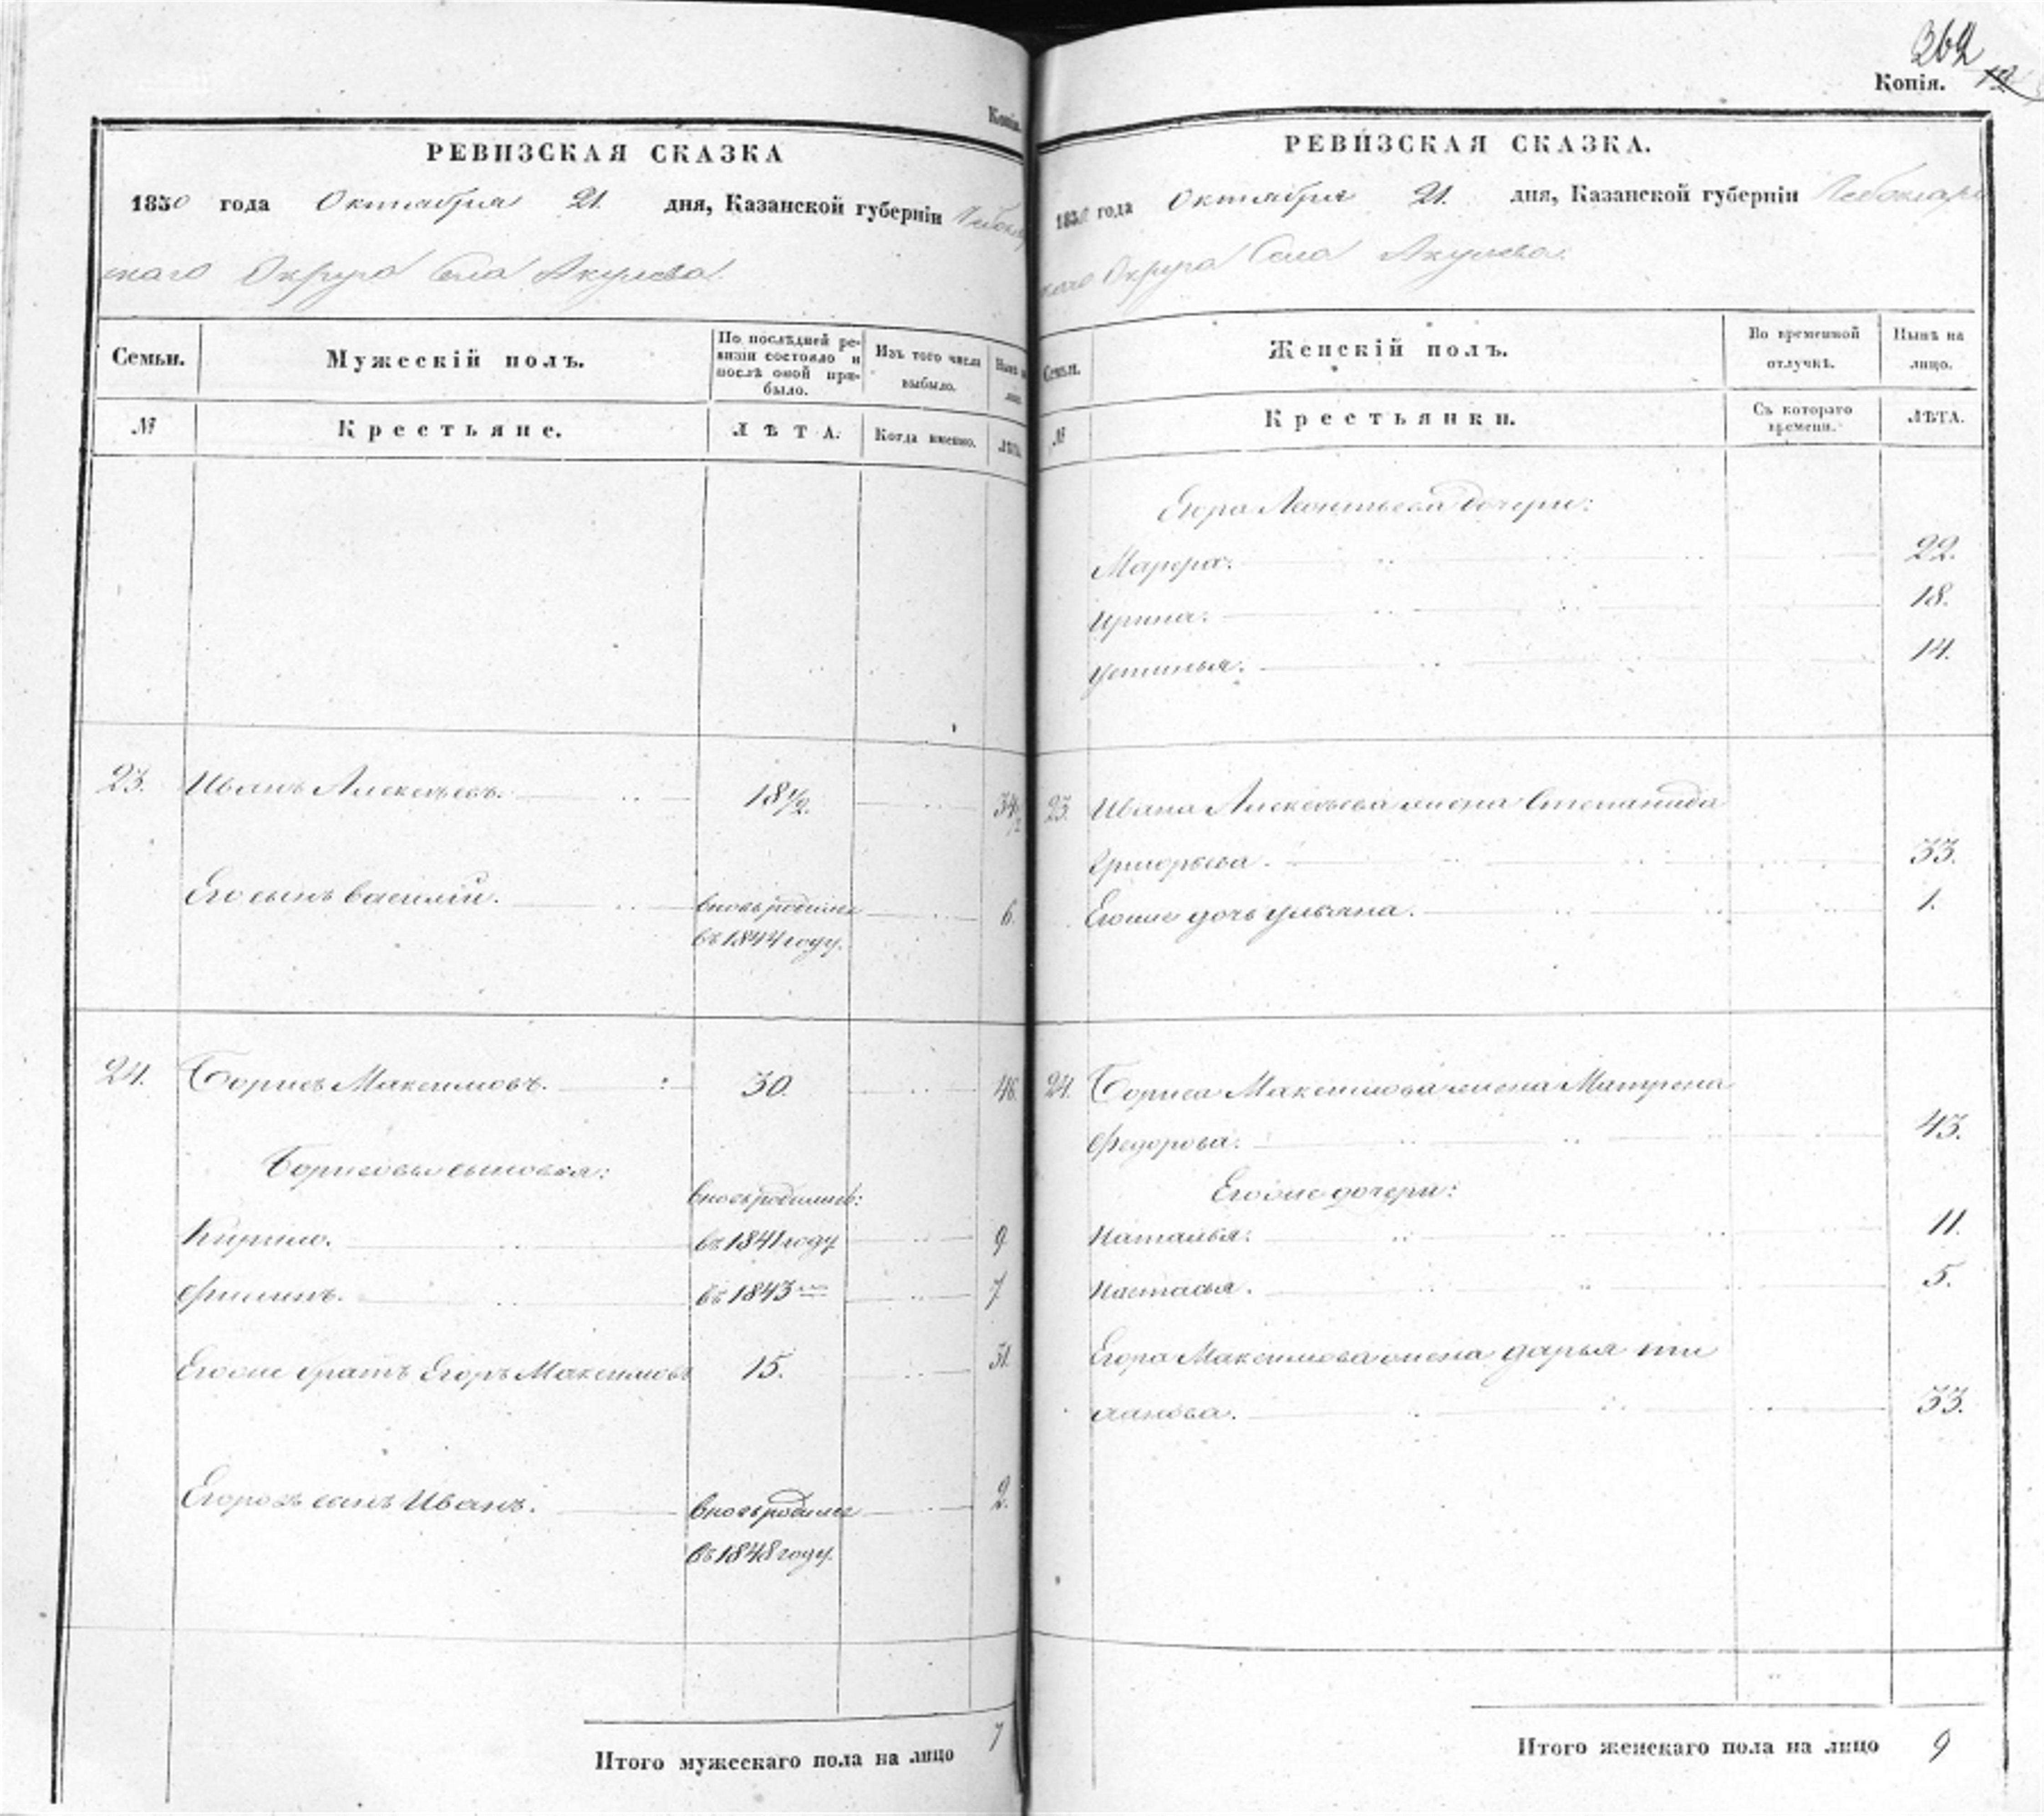 Копія.
РЕВИЗСКАЯ СКАЗКА
1850 года Октября 21. дня, Казанской губерніи Чебокса
рскаго Округа Села Акулева.
Семьи.
Мужескій полъ.
По послѣдней ре-
визіи состояло и
послѣ оной при-
было.
Изъ того числа
выбыло.
Нынѣ на
лицо
№
Крестьяне.
ЛѢТА.
Когда именно.
Лѣта
23. Иванъ Алексѣевъ. 18 1/2. 34 1/2
Его сынъ Василій. вновь родился 6.
въ 1844 году.
24. Борисъ Максимовъ. 30. 46.
Борисовы сыновья:
вновь родились:
Кирило. въ 1841 году 9
Филипъ. въ 1843 7
Его же братъ Егоръ Максимовъ 15. 31
Егоровъ сынъ Иванъ. вновь родился 2.
въ 1848 году.
Итого мужескаго пола на лицо 7
362
Копія.
РЕВИЗСКАЯ СКАЗКА.
1850 года Октября 21. дня, Казанской губерніи Чебоксар
скаго Округа Села Акулева.
Семьи.
Женскій полъ.
Во временной
отлучкѣ.
Нынѣ на
лицо.
№
Крестьянки.
Съ котораго
времени.
ЛѢТА.
Егора Леонтьева дочери:
Марфа. 22.
Ирина. 18.
Устинья. 14.
23. Ивана Алексѣева жена Степанида
Григорьева. 33.
Его же дочь Ульяна. 1.
24. Бориса Максимова жена Матрена
Федорова. 43.
Его же дочери:
Наталья. 11.
Настасья. 5.
Егора Максимова жена Дарья
33.
Итого женскаго пола на лицо 9